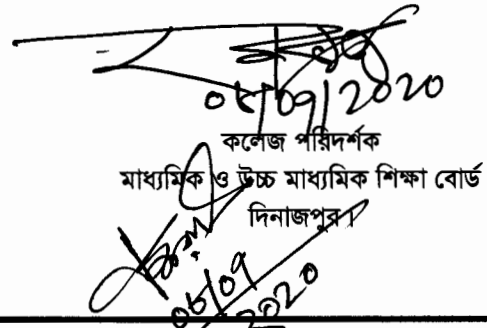 ০৮/০৭/2020
কলেজ পরিদর্শক
মাধ্যমিক ও উচ্চ মাধ্যমিক শিক্ষা বোর্ড
দিনাজপুর।
০৮/০৭
2020